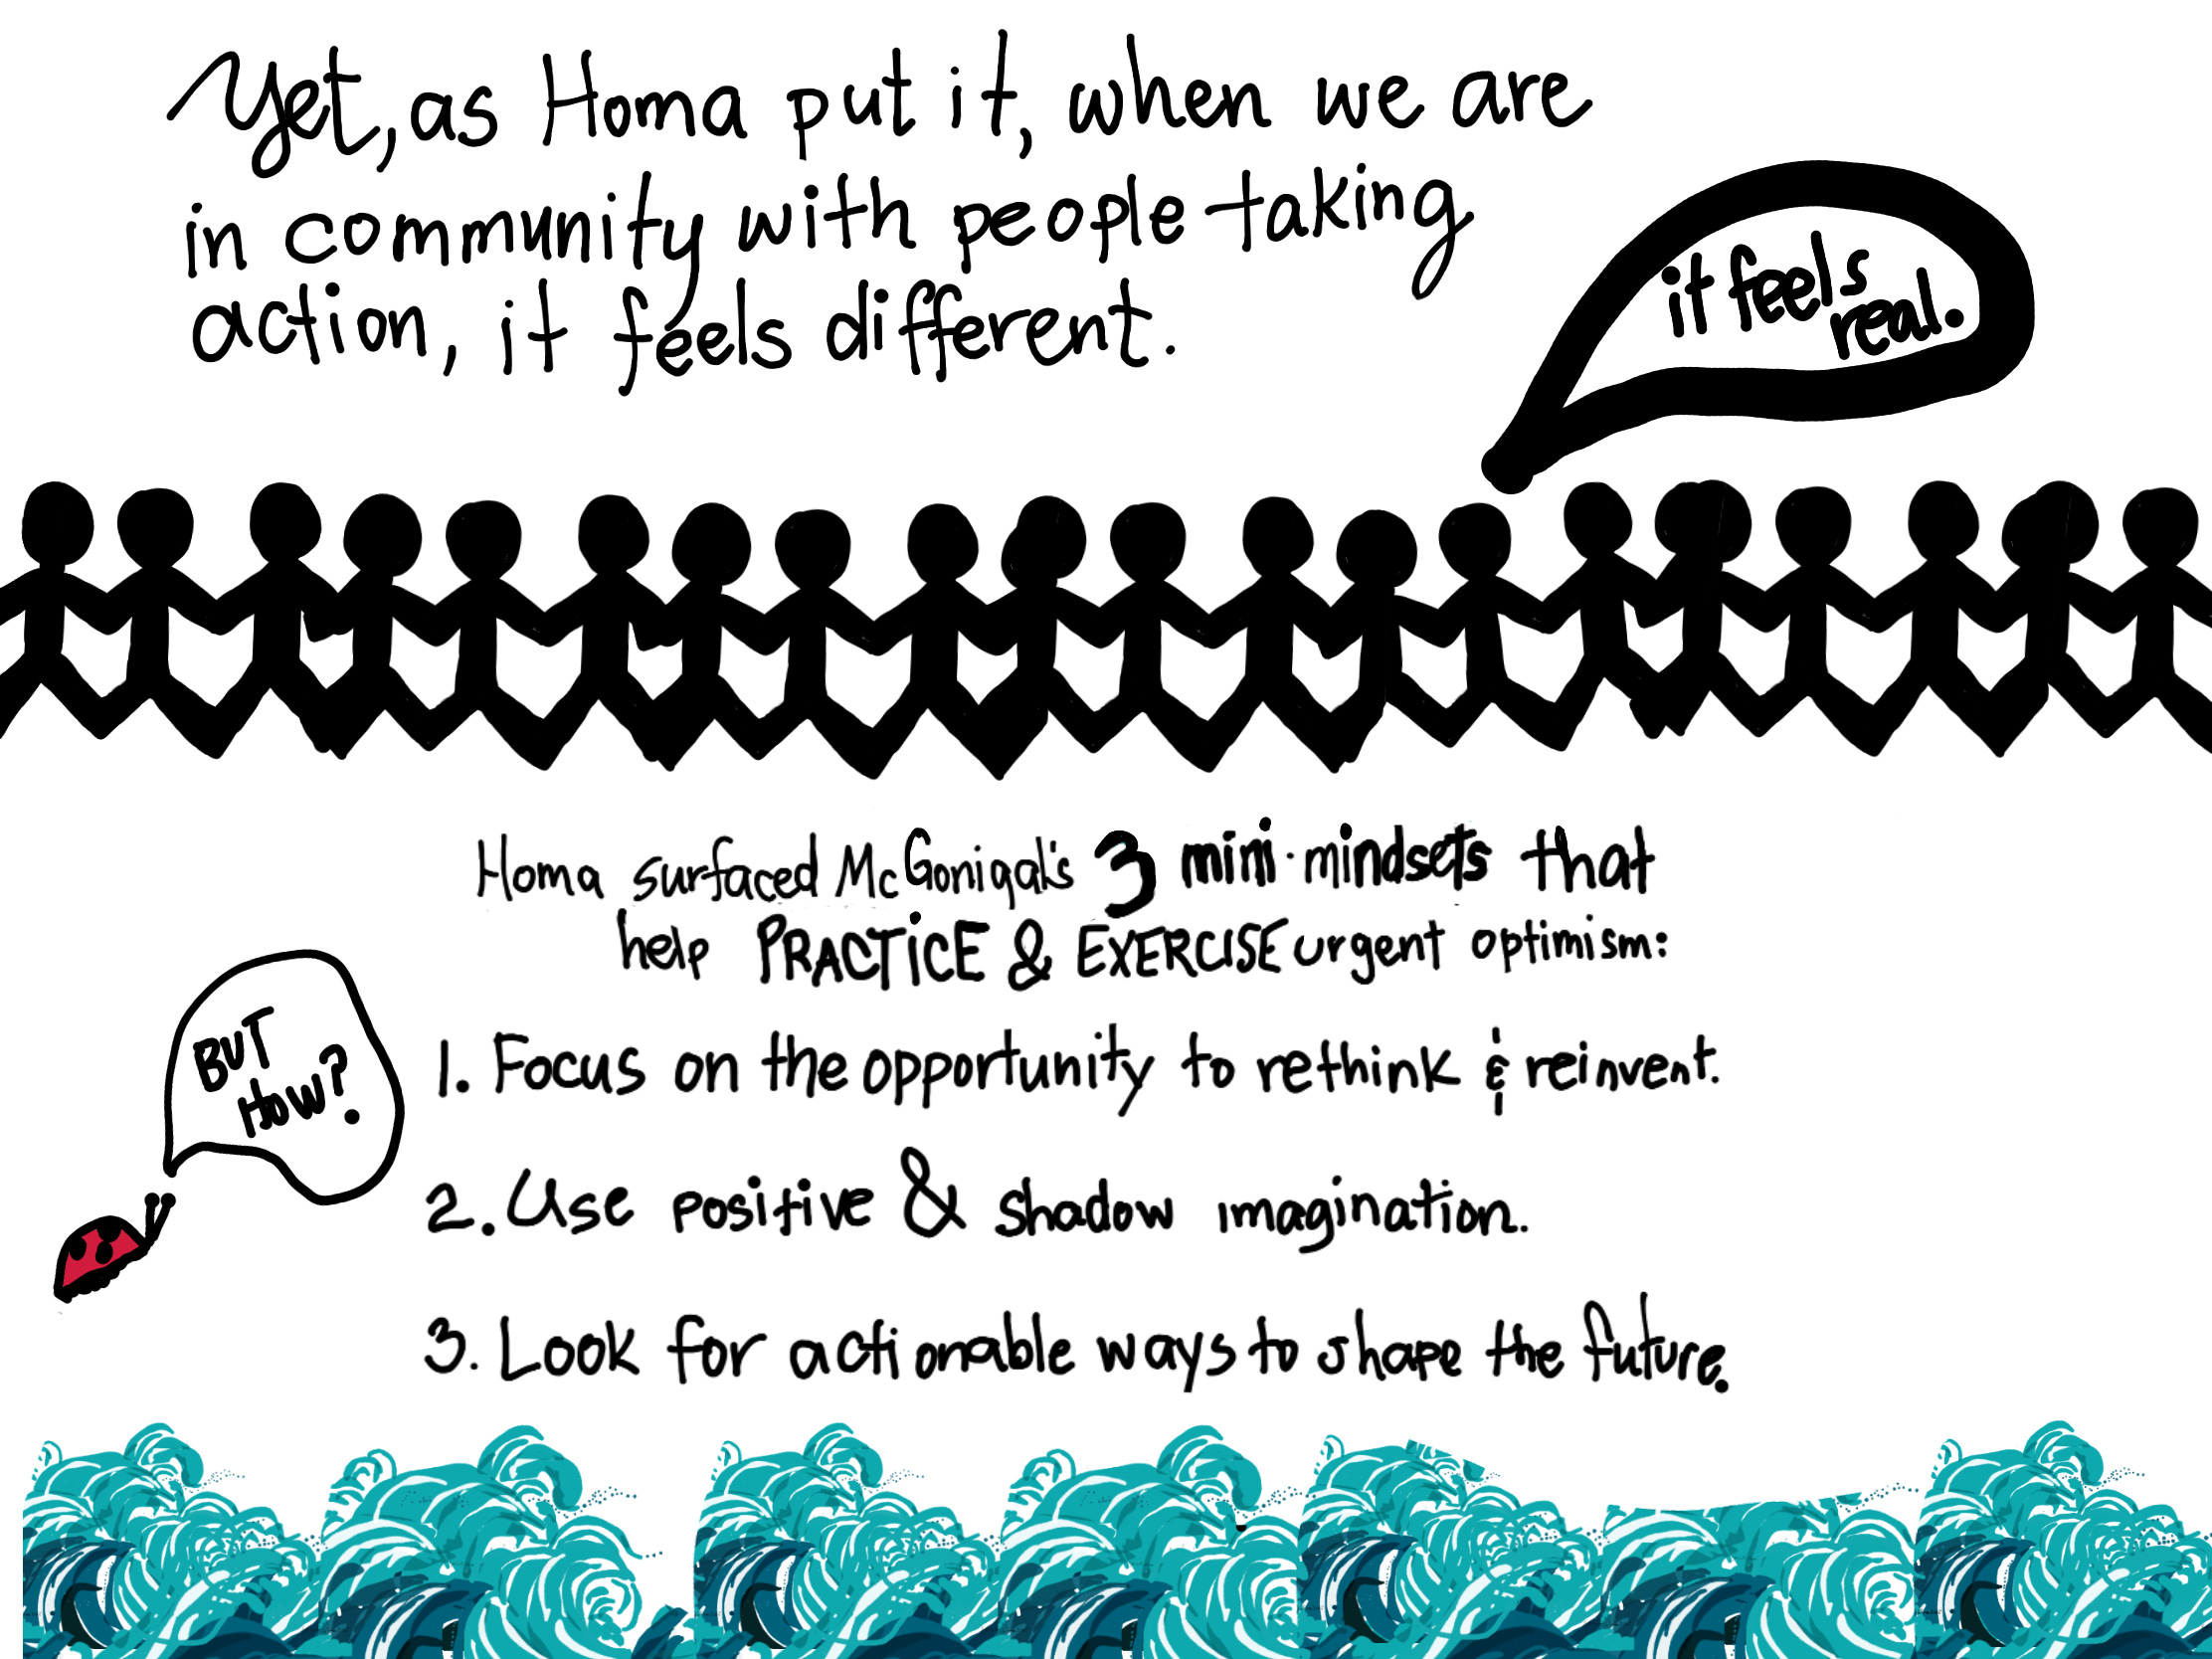 Yet, as Homa put it, when we are
in community with people taking
action, it feels different.
it feels
real.
Homa surfaced McGonigal's 3 mini·mindsets that
help PRACTiCE & EXERCISE urgent optimism:
BUT
HOW?
1. Focus on the opportunity to rethink & reinvent.
2. Use positive & shadow imagination.
3. Look for actionable ways to shape the future.